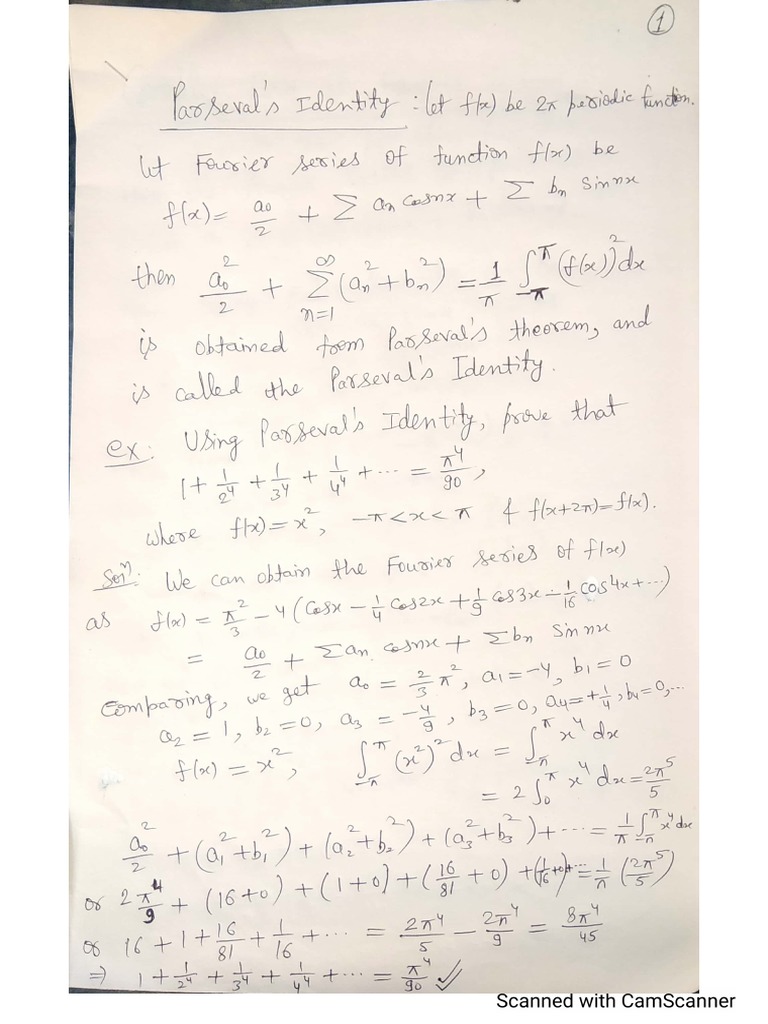 ①
Parseval's Identity : let f(x) be 2π periodic function.
let Fourier series of function f(x) be
f(x) = a₀/2 + Σ aₙ cosnx + Σ bₙ sinnx
then a₀²/2 + Σ_{n=1}^{∞} (aₙ² + bₙ²) = 1/π ∫_{-π}^{π} (f(x))² dx
is obtained from Parseval's theorem, and
is called the Parseval's Identity.
ex: Using Parseval's Identity, prove that
1 + 1/2⁴ + 1/3⁴ + 1/4⁴ + ... = π⁴/90,
where f(x) = x², -π < x < π & f(x+2π) = f(x).
Solⁿ: We can obtain the Fourier series of f(x)
as f(x) = π²/3 - 4 (cosx - 1/4 cos2x + 1/9 cos3x - 1/16 cos4x + ...)
= a₀/2 + Σ aₙ cosnx + Σ bₙ sinnx
Comparing, we get a₀ = 2/3 π², a₁ = -4, b₁ = 0
a₂ = 1, b₂ = 0, a₃ = -4/9, b₃ = 0, a₄ = +1/4, b₄ = 0, ...
f(x) = x², ∫_{-π}^{π} (x²)² dx = ∫_{-π}^{π} x⁴ dx
= 2 ∫₀^π x⁴ dx = 2π⁵/5
a₀²/2 + (a₁² + b₁²) + (a₂² + b₂²) + (a₃² + b₃²) + ... = 1/π ∫_{-π}^{π} x⁴ dx
or 2π⁴/9 + (16+0) + (1+0) + (16/81 + 0) + (1/16 + 0) + ... = 1/π (2π⁵/5)
or 16 + 1 + 16/81 + 1/16 + ... = 2π⁴/5 - 2π⁴/9 = 8π⁴/45
⇒ 1 + 1/2⁴ + 1/3⁴ + 1/4⁴ + ... = π⁴/90 ✓
Scanned with CamScanner